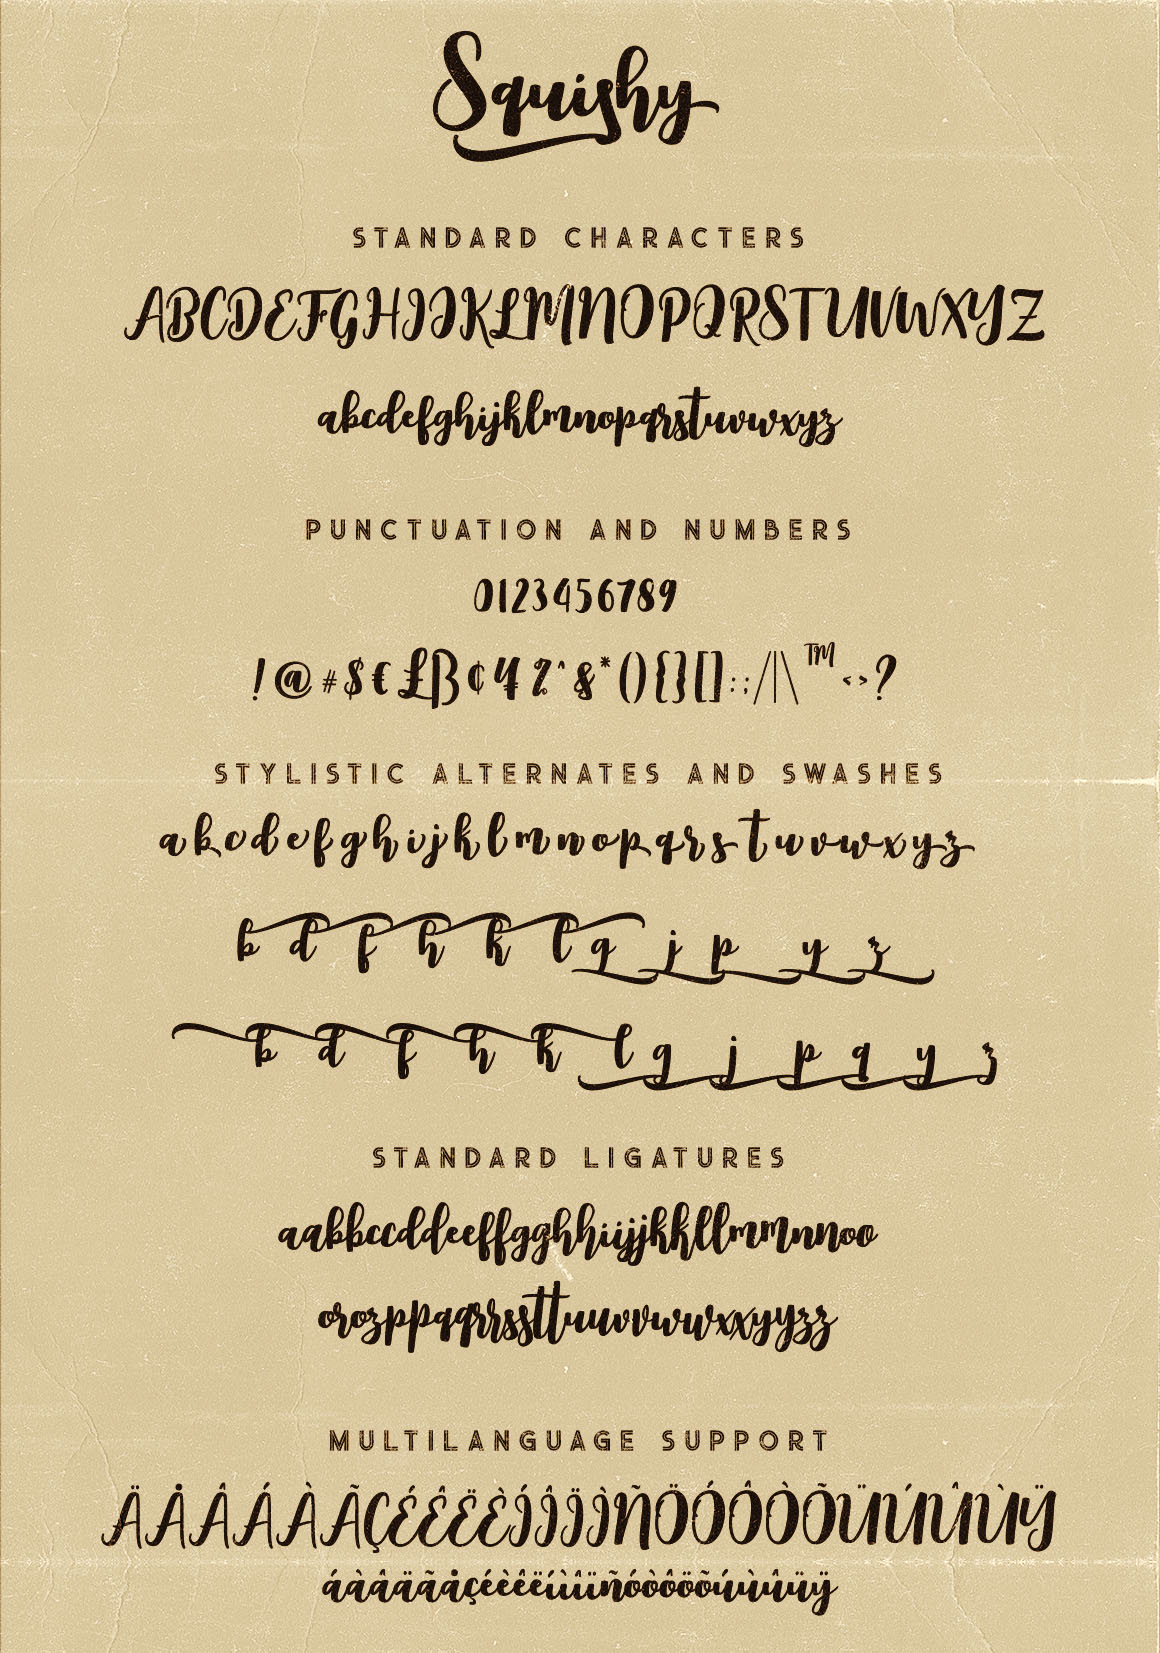 Squishy
STANDARD CHARACTERS
ABCDEFGHIJKLMNOPQRSTUVWXYZ
abcdefghijklmnopqrstuvwxyz
PUNCTUATION AND NUMBERS
0123456789
!@#$€£ß¢¥%^&*(){}[]:;/|\™<>?
STYLISTIC ALTERNATES AND SWASHES
abcdefghijklmnopqrstuvwxyz
b d f h k l g j p y z
b d f h k l g j p q y z
STANDARD LIGATURES
aabbccddeeffgghhiijjkkllmmnnoo
orozppqqrrssttuuvvwwxxyyzz
MULTILANGUAGE SUPPORT
ÄÅÂÁÀÃÇÉÊËÈÍÎÏÌÑÖÓÔÒÕÜÚÛÙŸ
áàâäãåçéèêëíìîïñóòôöõúùûüÿ